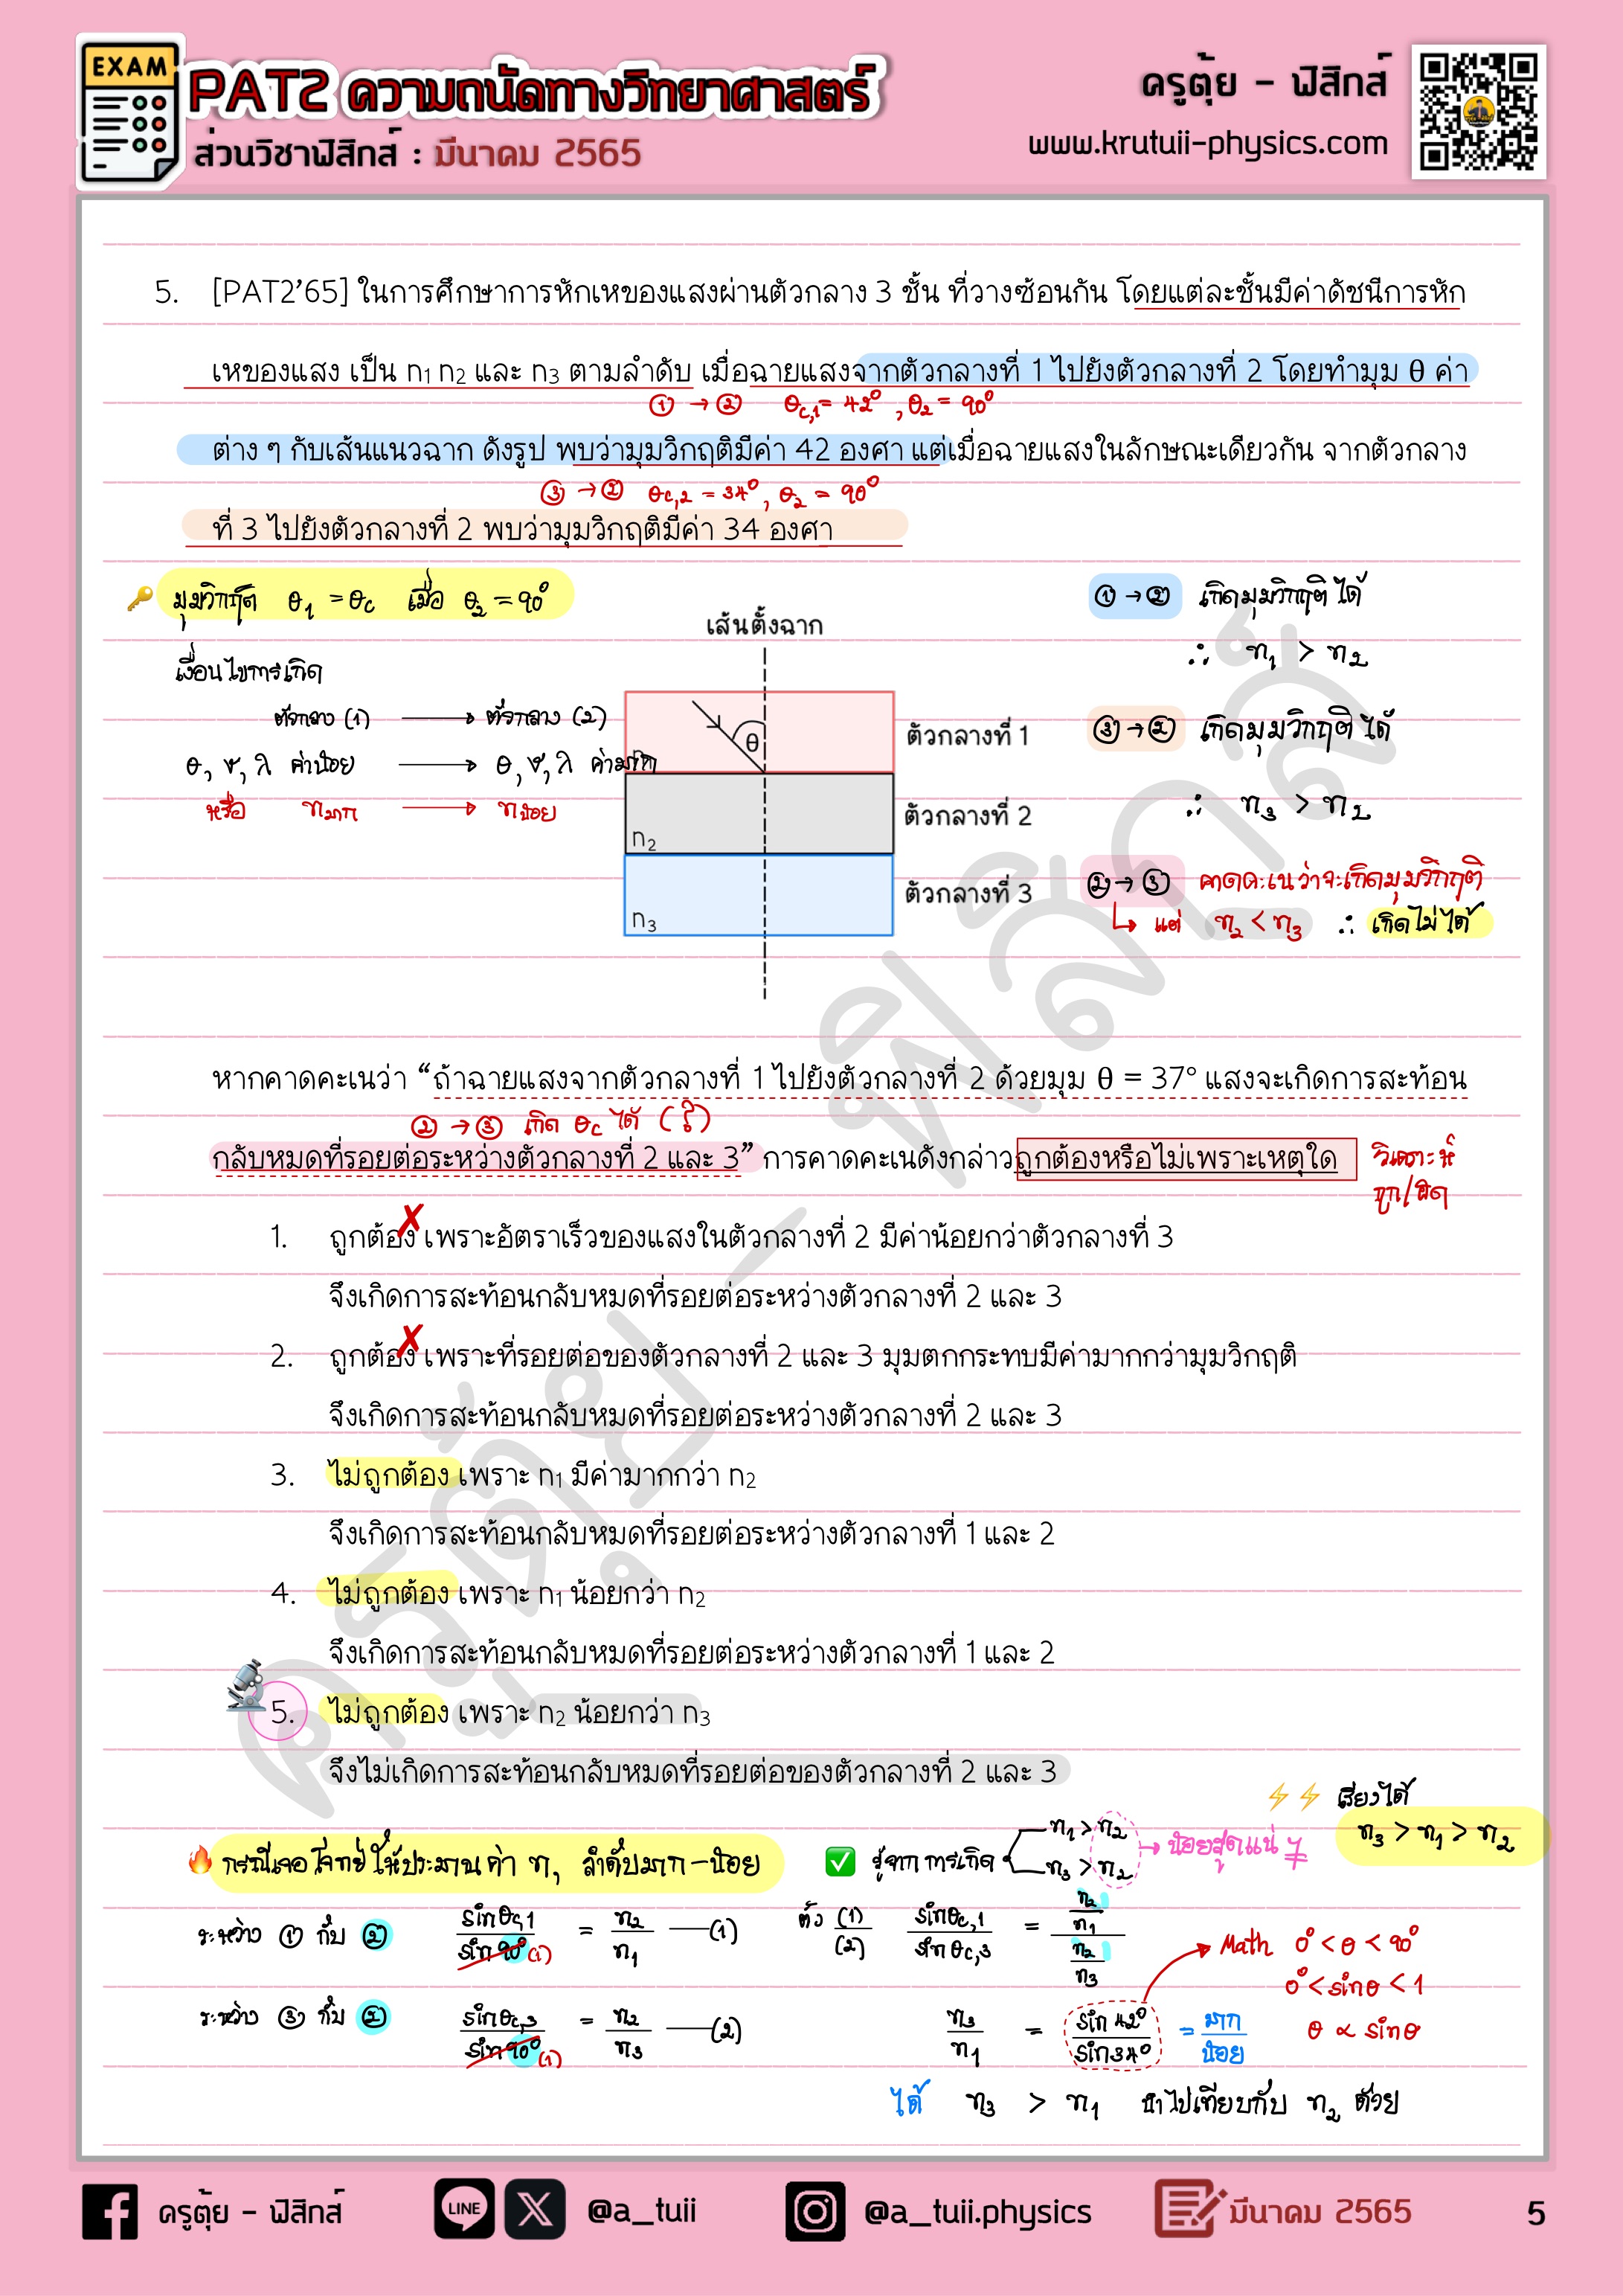 EXAM
PAT2 ความถนัดทางวิทยาศาสตร์
ส่วนวิชาฟิสิกส์ : มีนาคม 2565
ครูตุ้ย – ฟิสิกส์
www.krutuii-physics.com
5. [PAT2'65] ในการศึกษาการหักเหของแสงผ่านตัวกลาง 3 ชั้น ที่วางซ้อนกัน โดยแต่ละชั้นมีค่าดัชนีการหัก
เหของแสง เป็น n₁ n₂ และ n₃ ตามลำดับ เมื่อฉายแสงจากตัวกลางที่ 1 ไปยังตัวกลางที่ 2 โดยทำมุม θ ค่า
① → ② θc,1 = 42° , θ₂ = 90°
ต่าง ๆ กับเส้นแนวฉาก ดังรูป พบว่ามุมวิกฤติมีค่า 42 องศา แต่เมื่อฉายแสงในลักษณะเดียวกัน จากตัวกลาง
③ → ② θc,2 = 34° , θ₂ = 90°
ที่ 3 ไปยังตัวกลางที่ 2 พบว่ามุมวิกฤติมีค่า 34 องศา
มุมวิกฤติ θ₁ = θc เมื่อ θ₂ = 90°
เงื่อนไขการเกิด
ตัวกลาง (1) → ตัวกลาง (2)
θ, v, λ ค่าน้อย → θ, v, λ ค่ามาก
หรือ nมาก → nน้อย
เส้นตั้งฉาก
θ
ตัวกลางที่ 1
n₂
ตัวกลางที่ 2
n₃
ตัวกลางที่ 3
① → ② เกิดมุมวิกฤติ ได้
∴ n₁ > n₂
③ → ② เกิดมุมวิกฤติ ได้
∴ n₃ > n₂
② → ③ คาดคะเนว่าจะเกิดมุมวิกฤติ
แต่ n₂ < n₃ ∴ เกิดไม่ได้
หากคาดคะเนว่า “ถ้าฉายแสงจากตัวกลางที่ 1 ไปยังตัวกลางที่ 2 ด้วยมุม θ = 37° แสงจะเกิดการสะท้อน
② → ③ เกิด θc ได้ (?)
กลับหมดที่รอยต่อระหว่างตัวกลางที่ 2 และ 3” การคาดคะเนดังกล่าวถูกต้องหรือไม่เพราะเหตุใด
วิเคราะห์
ถูก/ผิด
1. ถูกต้อง เพราะอัตราเร็วของแสงในตัวกลางที่ 2 มีค่าน้อยกว่าตัวกลางที่ 3
จึงเกิดการสะท้อนกลับหมดที่รอยต่อระหว่างตัวกลางที่ 2 และ 3
2. ถูกต้อง เพราะที่รอยต่อของตัวกลางที่ 2 และ 3 มุมตกกระทบมีค่ามากกว่ามุมวิกฤติ
จึงเกิดการสะท้อนกลับหมดที่รอยต่อระหว่างตัวกลางที่ 2 และ 3
3. ไม่ถูกต้อง เพราะ n₁ มีค่ามากกว่า n₂
จึงเกิดการสะท้อนกลับหมดที่รอยต่อระหว่างตัวกลางที่ 1 และ 2
4. ไม่ถูกต้อง เพราะ n₁ น้อยกว่า n₂
จึงเกิดการสะท้อนกลับหมดที่รอยต่อระหว่างตัวกลางที่ 1 และ 2
5. ไม่ถูกต้อง เพราะ n₂ น้อยกว่า n₃
จึงไม่เกิดการสะท้อนกลับหมดที่รอยต่อของตัวกลางที่ 2 และ 3
ครูตุ้ย – ฟิสิกส์
เรียงได้
n₃ > n₁ > n₂
กรณีเจอโจทย์ให้ประมาณค่า n, ลำดับมาก-น้อย
รู้จากการเกิด n₁ > n₂
n₃ > n₂ → น้อยสุดแน่ ๆ
ระหว่าง ① กับ ② sinθc,1 / sin 90° (1) = n₂ / n₁ —(1)
ตั้ง (1)/(2) sinθc,1 / sinθc,3 = (n₂/n₁) / (n₂/n₃)
Math 0° < θ < 90°
0° < sinθ < 1
θ ∝ sinθ
ระหว่าง ③ กับ ② sinθc,3 / sin 90° (1) = n₂ / n₃ —(2)
n₃ / n₁ = sin 42° / sin 34° = มาก / น้อย
ได้ n₃ > n₁ นำไปเทียบกับ n₂ ด้วย
ครูตุ้ย – ฟิสิกส์
LINE
@a_tuii
@a_tuii.physics
มีนาคม 2565
5